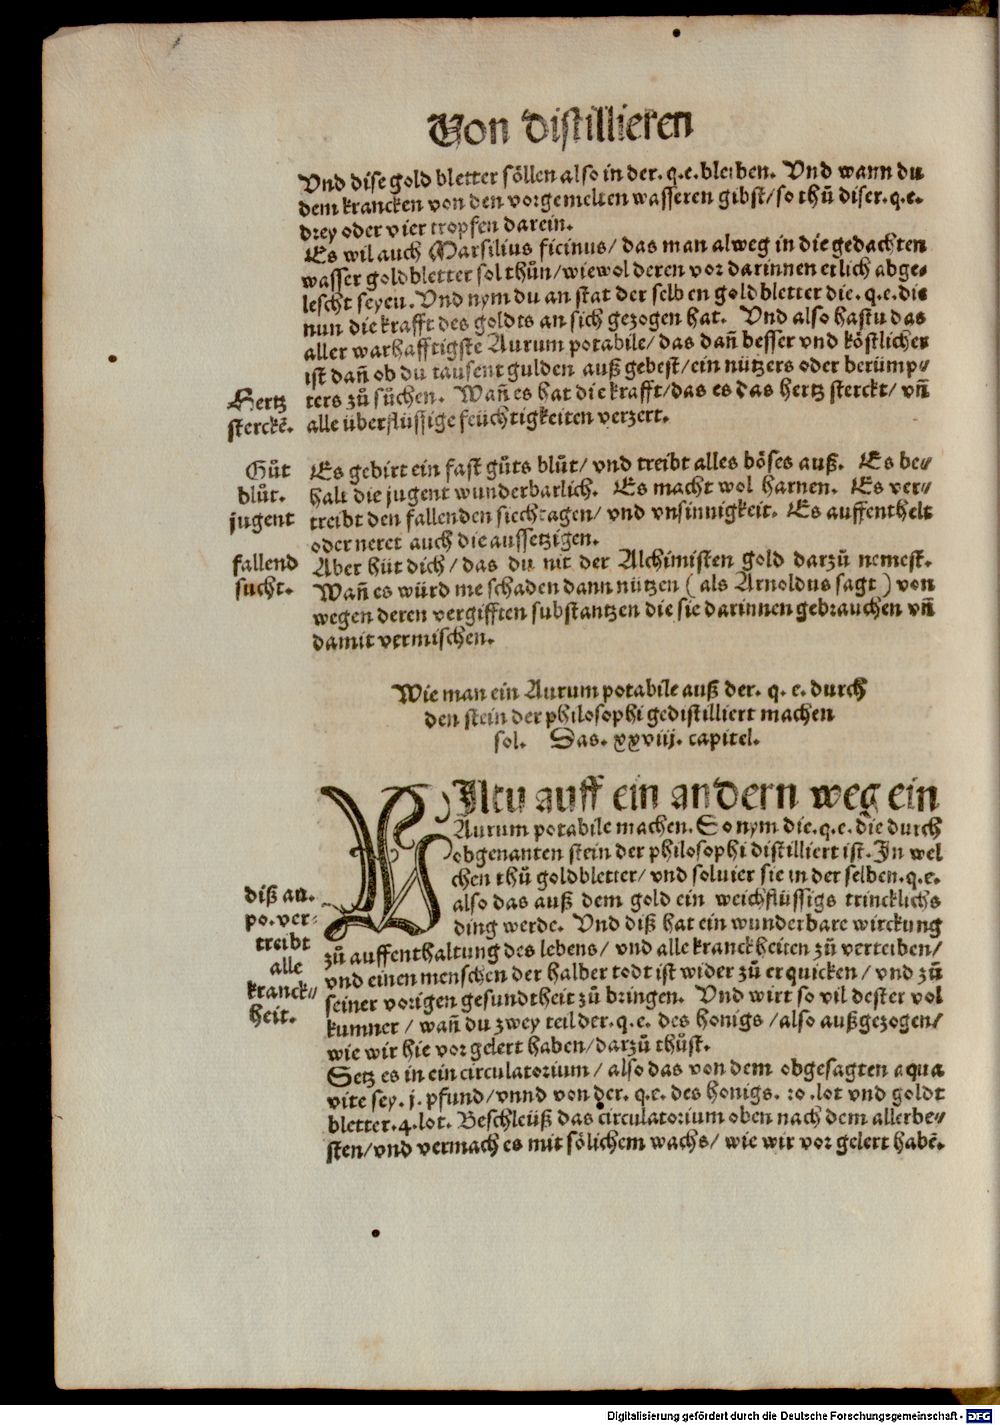 Von distillieren
Vnd dise gold bletter söllen also in der. q.e. bleiben. Vnd wann du
dem krancken von den vorgemelten wasseren gibst/ so thů diser. q.e.
drey oder vier tropfen darein.
Es wil auch Marsilius ficinus/ das man alweg in die gedachten
wasser goldbletter sol thůn/ wiewol deren vor darinnen etlich abge-
lescht seyen. Vnd nym du an stat der selben gold bletter die. q.e. die
nun die krafft des goldts an sich gezogen hat. Vnd also hastu das
aller warhafftigste Aurum potabile/ das dañ besser vnd köstlicher
ist dañ ob du tausent gulden auß gebest/ ein nützers oder berümp-
ters zů sůchen. Wañ es hat die krafft/ das es das hertz sterckt/ vñ
alle überflüssige feüchtigkeiten verzert.
Hertz
sterckē.
Es gebirt ein fast gůts blůt/ vnd treibt alles böses auß. Es be-
halt die jugent wunderbarlich. Es macht wol harnen. Es ver-
treibt den fallenden siechtagen/ vnd vnsinnigkeit. Es auffenthelt
oder neret auch die aussetzigen.
Gůt
blůt.
jugent
Aber hüt dich/ das du nit der Alchimisten gold darzů nemest.
Wañ es würd me schaden dann nützen ( als Arnoldus sagt ) von
wegen deren vergifften substantzen die sie darinnen gebrauchen vñ
damit vermischen.
fallend
sucht.
Wie man ein Aurum potabile auß der. q. e. durch
den stein der philosophi gedistilliert machen
sol. Das. xxviij. capitel.
WIltu auff ein andern weg ein
Aurum potabile machen. So nym die. q.e. die durch
obgenanten stein der philosophi distilliert ist. In wel
chen thů goldbletter/ vnd soluier sie in der selben. q.e.
also das auß dem gold ein weichflüssigs trincklichs
ding werde. Vnd diß hat ein wunderbare wirckung
zů auffenthaltung des lebens/ vnd alle kranckheiten zů verteiben/
vnd einen menschen der halber todt ist wider zů erquicken/ vnd zů
seiner vorigen gesundtheit zů bringen. Vnd wirt so vil dester vol
kumner/ wañ du zwey teil der. q.e. des honigs/ also außgezogen/
wie wir hie vor gelert haben/ darzů thůst.
diß au.
po. ver-
treibt
alle
kranck-
heit.
Setz es in ein circulatorium/ also das von dem obgesagten aqua
vite sey. j. pfund/ vnnd von der. q.e. des honigs. 10. lot vnd goldt
bletter. 4. lot. Beschleüß das circulatorium oben nach dem allerbe-
sten/ vnd vermach es mit sölichem wachs/ wie wir vor gelert habē.
Digitalisierung gefördert durch die Deutsche Forschungsgemeinschaft - DFG